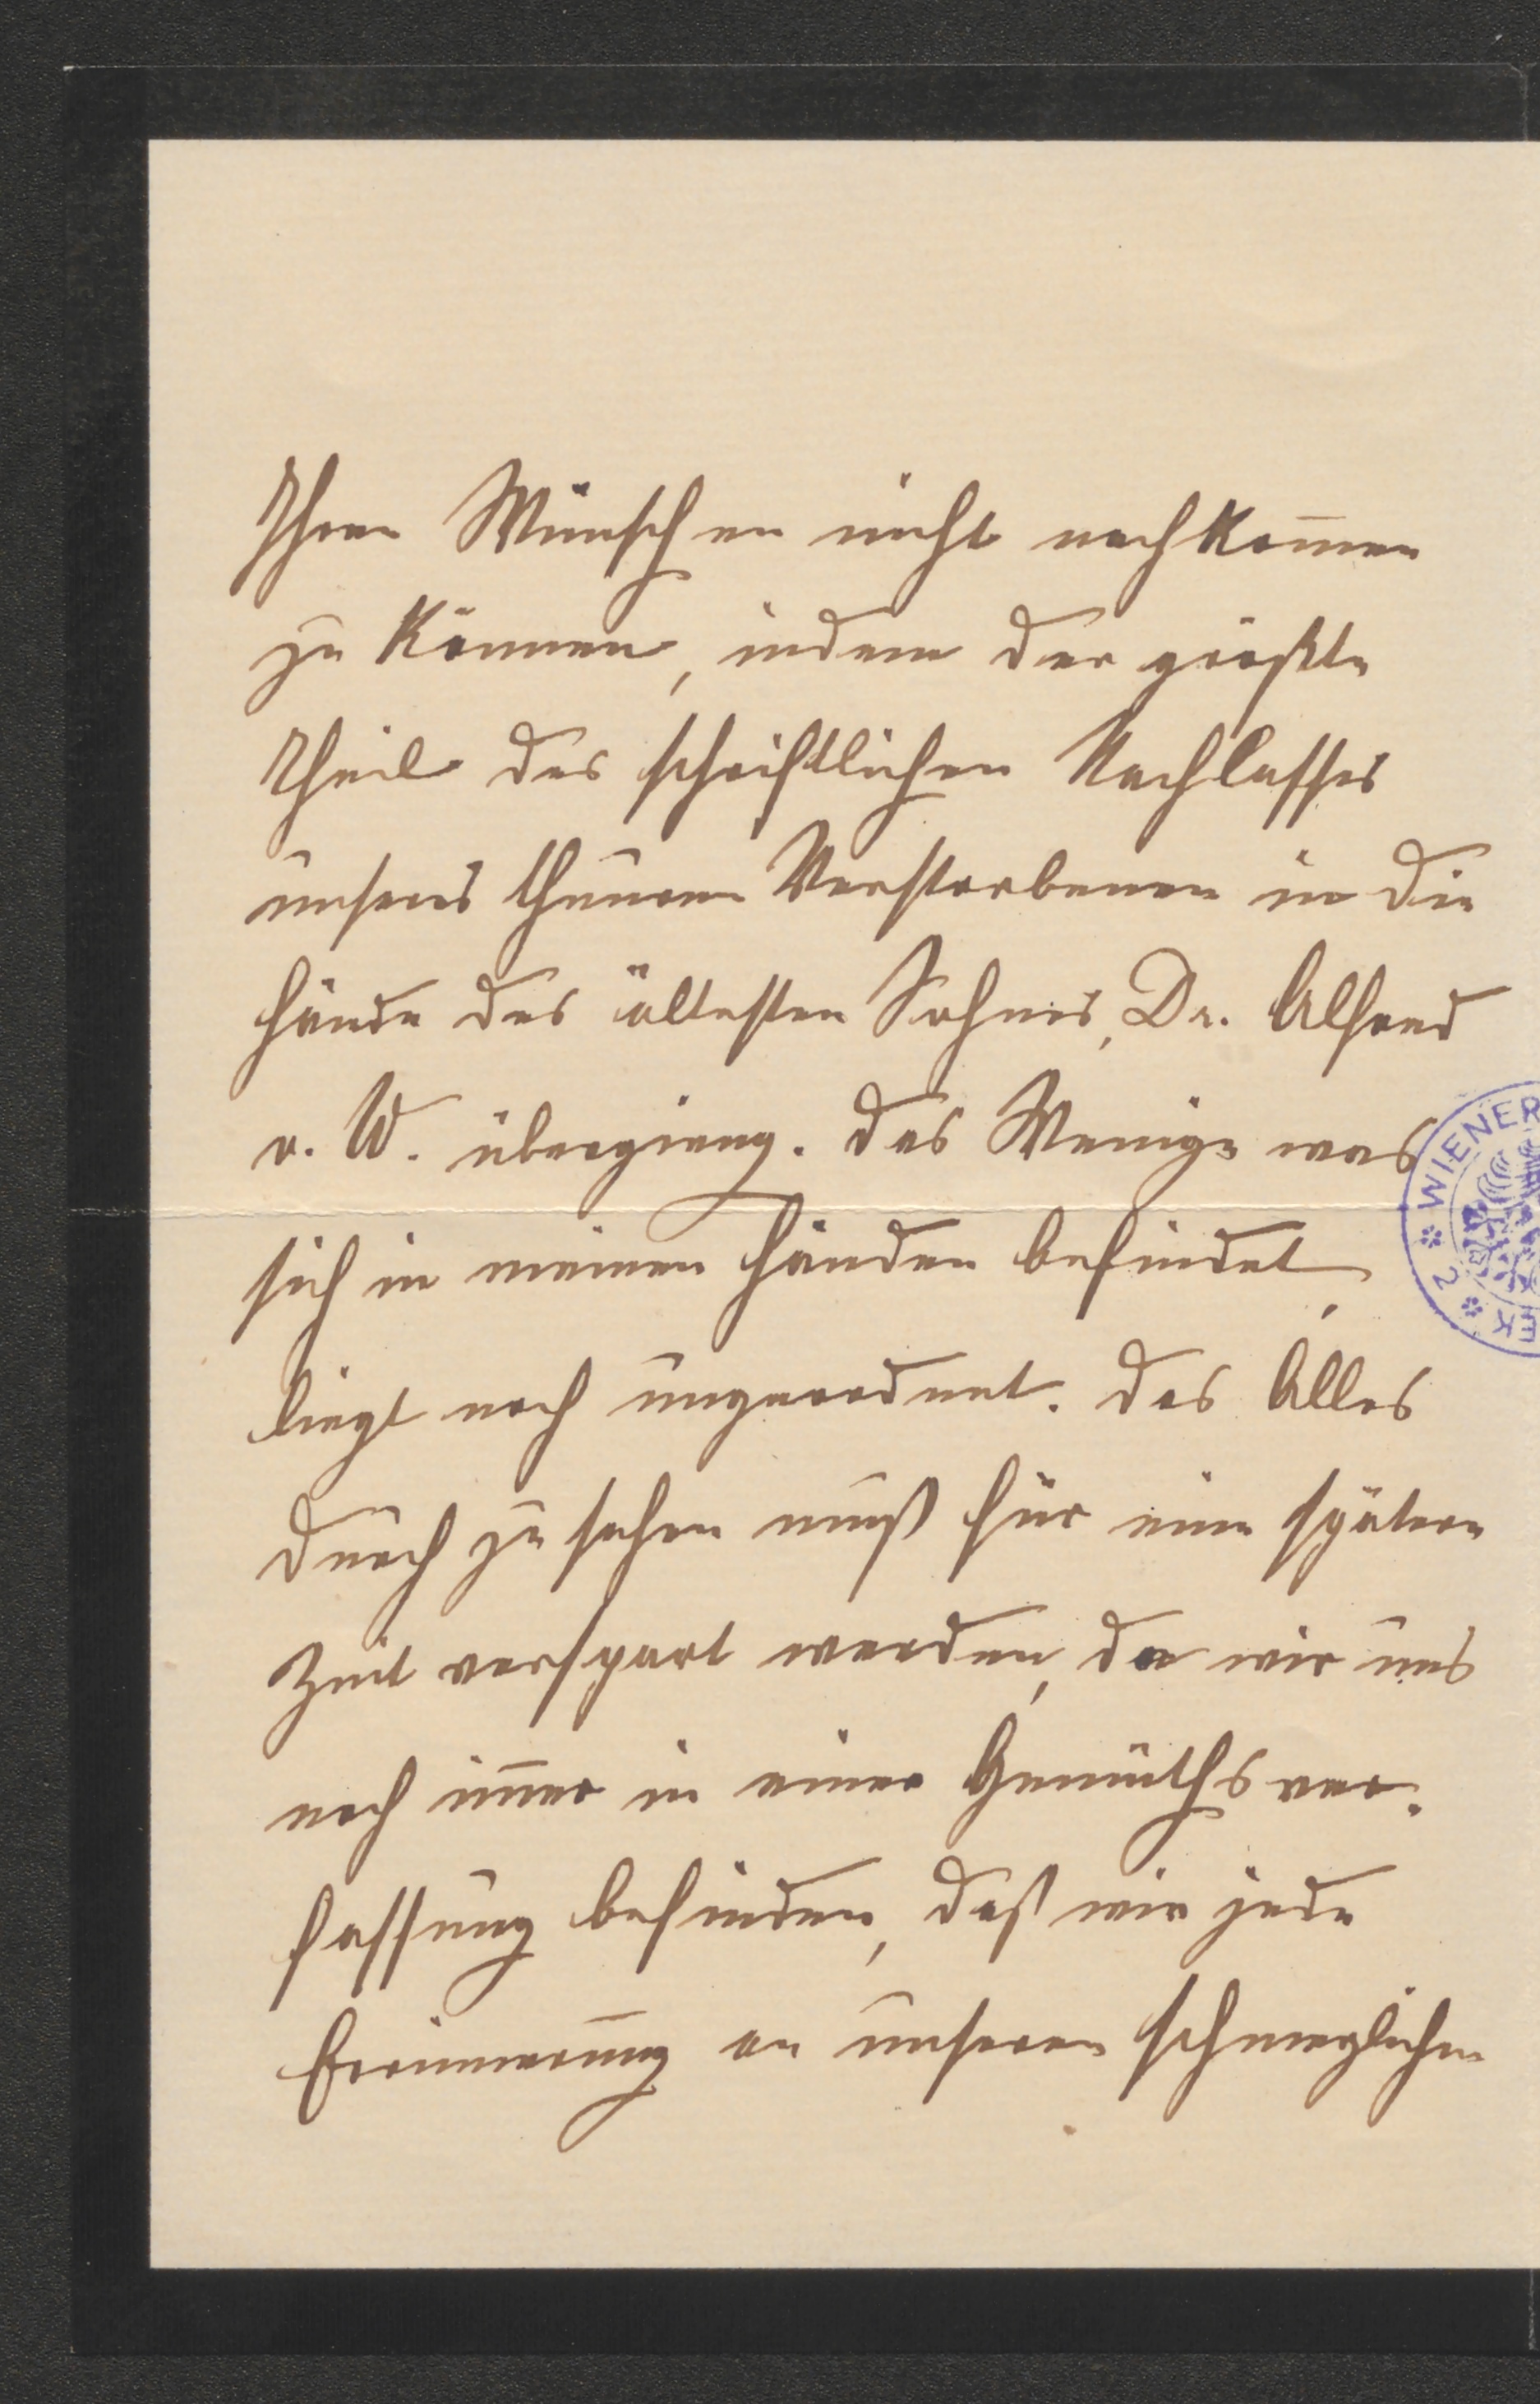 Ihren Wünschen nicht nachkom̄en
zu können, indem der größte
Theil des schriftlichen Nachlasses
unseres theuren Verstorbenen in die
Hände des ältesten Sohnes, Dr. Alfred
v. W. übergieng. Das Wenige was
sich in meinen Händen befindet,
liegt noch ungeordnet. Das Alles
durch zu sehen muß für eine spätere
Zeit verspart werden, da wir uns
noch im̄er in einer Gemüthsver-
fassung befinden, daß wir jede
Erinnerung an unseren schmerzlichen
WIENER
EK * 2 *